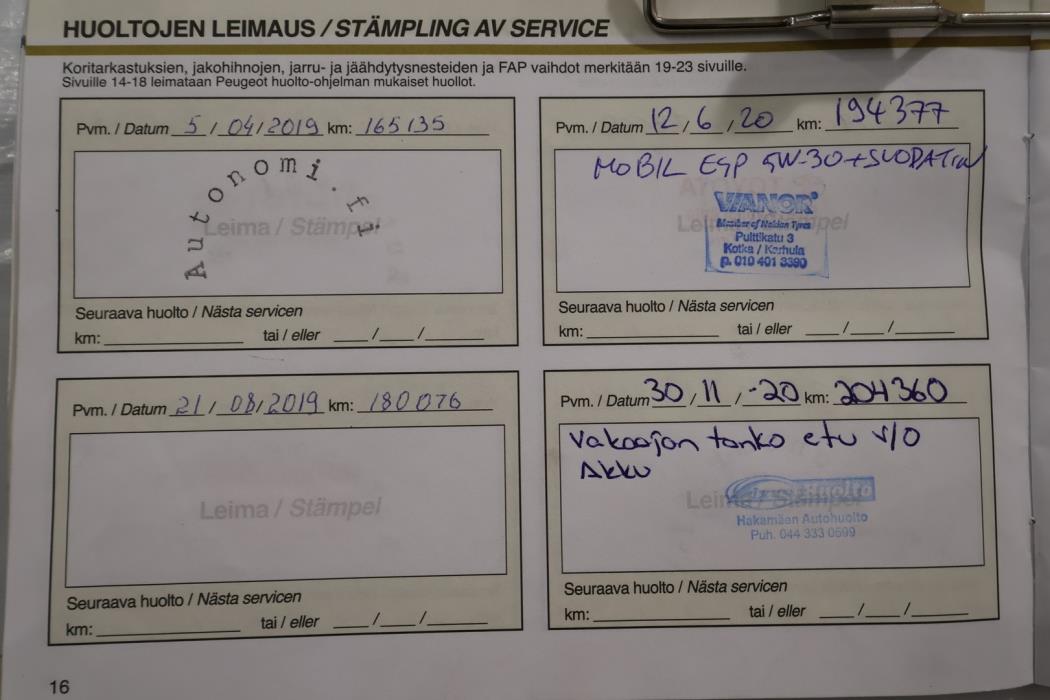 HUOLTOJEN LEIMAUS / STÄMPLING AV SERVICE
Koritarkastuksien, jakohihnojen, jarru- ja jäähdytysnesteiden ja FAP vaihdot merkitään 19-23 sivuille.
Sivuille 14-18 leimataan Peugeot huolto-ohjelman mukaiset huollot.
Pvm. / Datum 5 / 04 / 2019 km: 165135
Autonomi.fi
Leima / Stämpel
Seuraava huolto / Nästa servicen
km: tai / eller / /
Pvm. / Datum 21 / 08 / 2019 km: 180076
Leima / Stämpel
Seuraava huolto / Nästa servicen
km: tai / eller / /
Pvm. / Datum 12 / 6 / 20 km: 194377
MOBIL ESP 5W-30 + SUODATIN
Leima / Stämpel
VIANOR
Member of Nokian Tyres
Pulttikatu 3
Kotka / Karhula
p. 010 401 3390
Seuraava huolto / Nästa servicen
km: tai / eller / /
Pvm. / Datum 30 / 11 / -20 km: 204360
Vakaajan tanko etu v/o
Akku
Leima / Stämpel
Hakamäen Autohuolto
Puh. 044 333 0699
Seuraava huolto / Nästa servicen
km: tai / eller / /
16